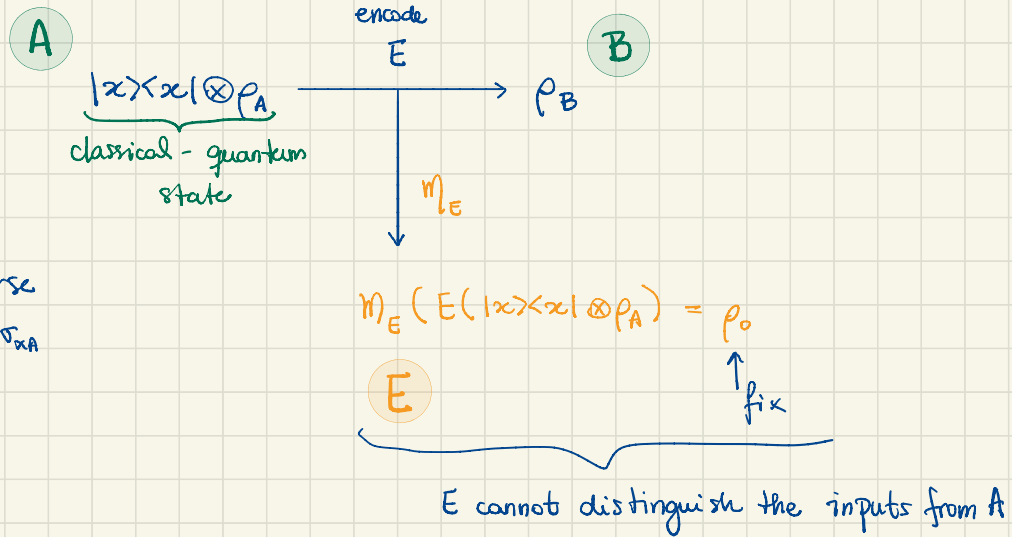 A
encode
E
B
|x><x| ⊗ ρ_A
ρ_B
classical - quantum
state
M_E
se
σ_xA
M_E ( E ( |x><x| ⊗ ρ_A ) = ρ_0
E
fix
E cannot distinguish the inputs from A